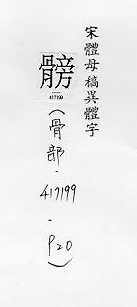 宋體母稿異體字
髈
417199
(骨部-417199-P20)